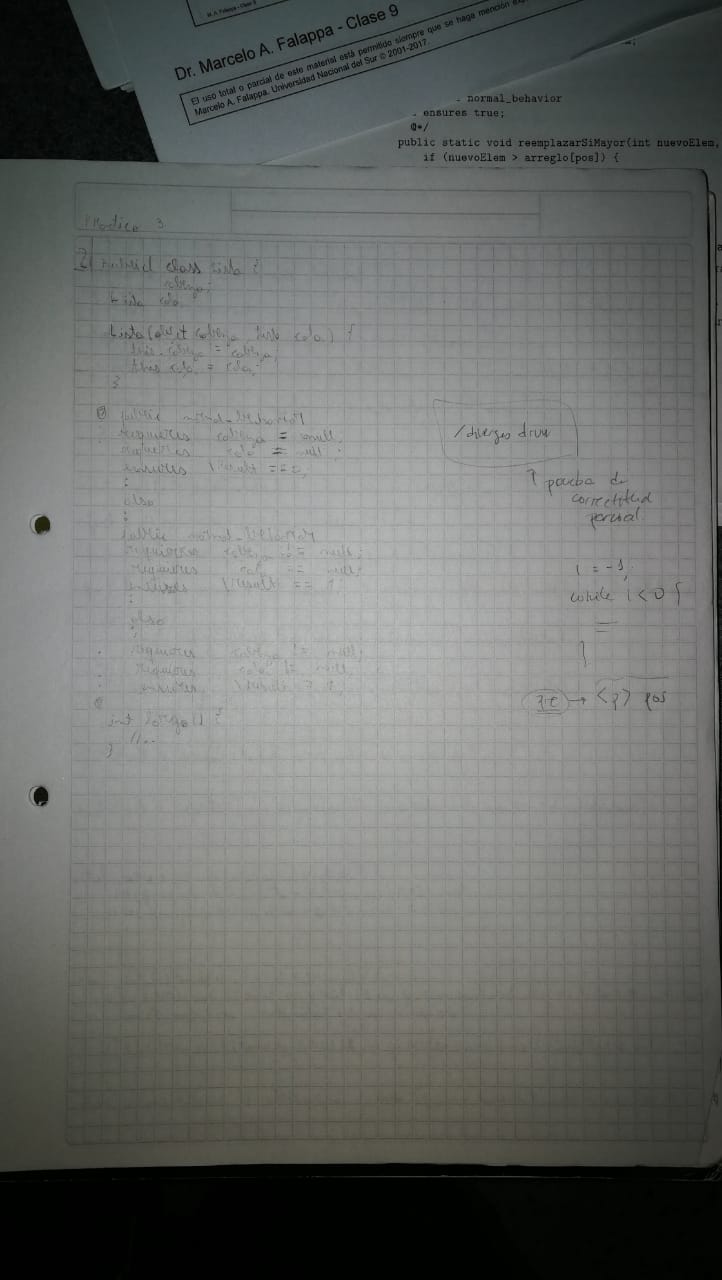 Dr. Marcelo A. Falappa - Clase 9
El uso total o parcial de este material está permitido siempre que se haga mención
Marcelo A. Falappa. Universidad Nacional del Sur © 2001-2017.
. normal_behavior
. ensures true;
@*/
public static void reemplazarSiMayor(int nuevoElem,
if (nuevoElem > arreglo[pos]) {
Practico 3
2) class Lista {
cabeza;
Lista cola;
Lista( cabeza, Lista cola) {
this.cabeza = cabeza;
this.cola = cola;
}
@ public normal_behavior
requires cabeza = null;
requires cola = null;
ensures \result ==
also
public normal_behavior
requires cabeza != null;
requires cola == null;
ensures \result == 1
also
requires cabeza != null;
requires cola != null;
ensures \result > 1;
@
int largo() {
//...
}
/diverges true
↑ prueba de
correctitud
parcial.
i = -1;
while i<0 {
}
pre → <p> pos